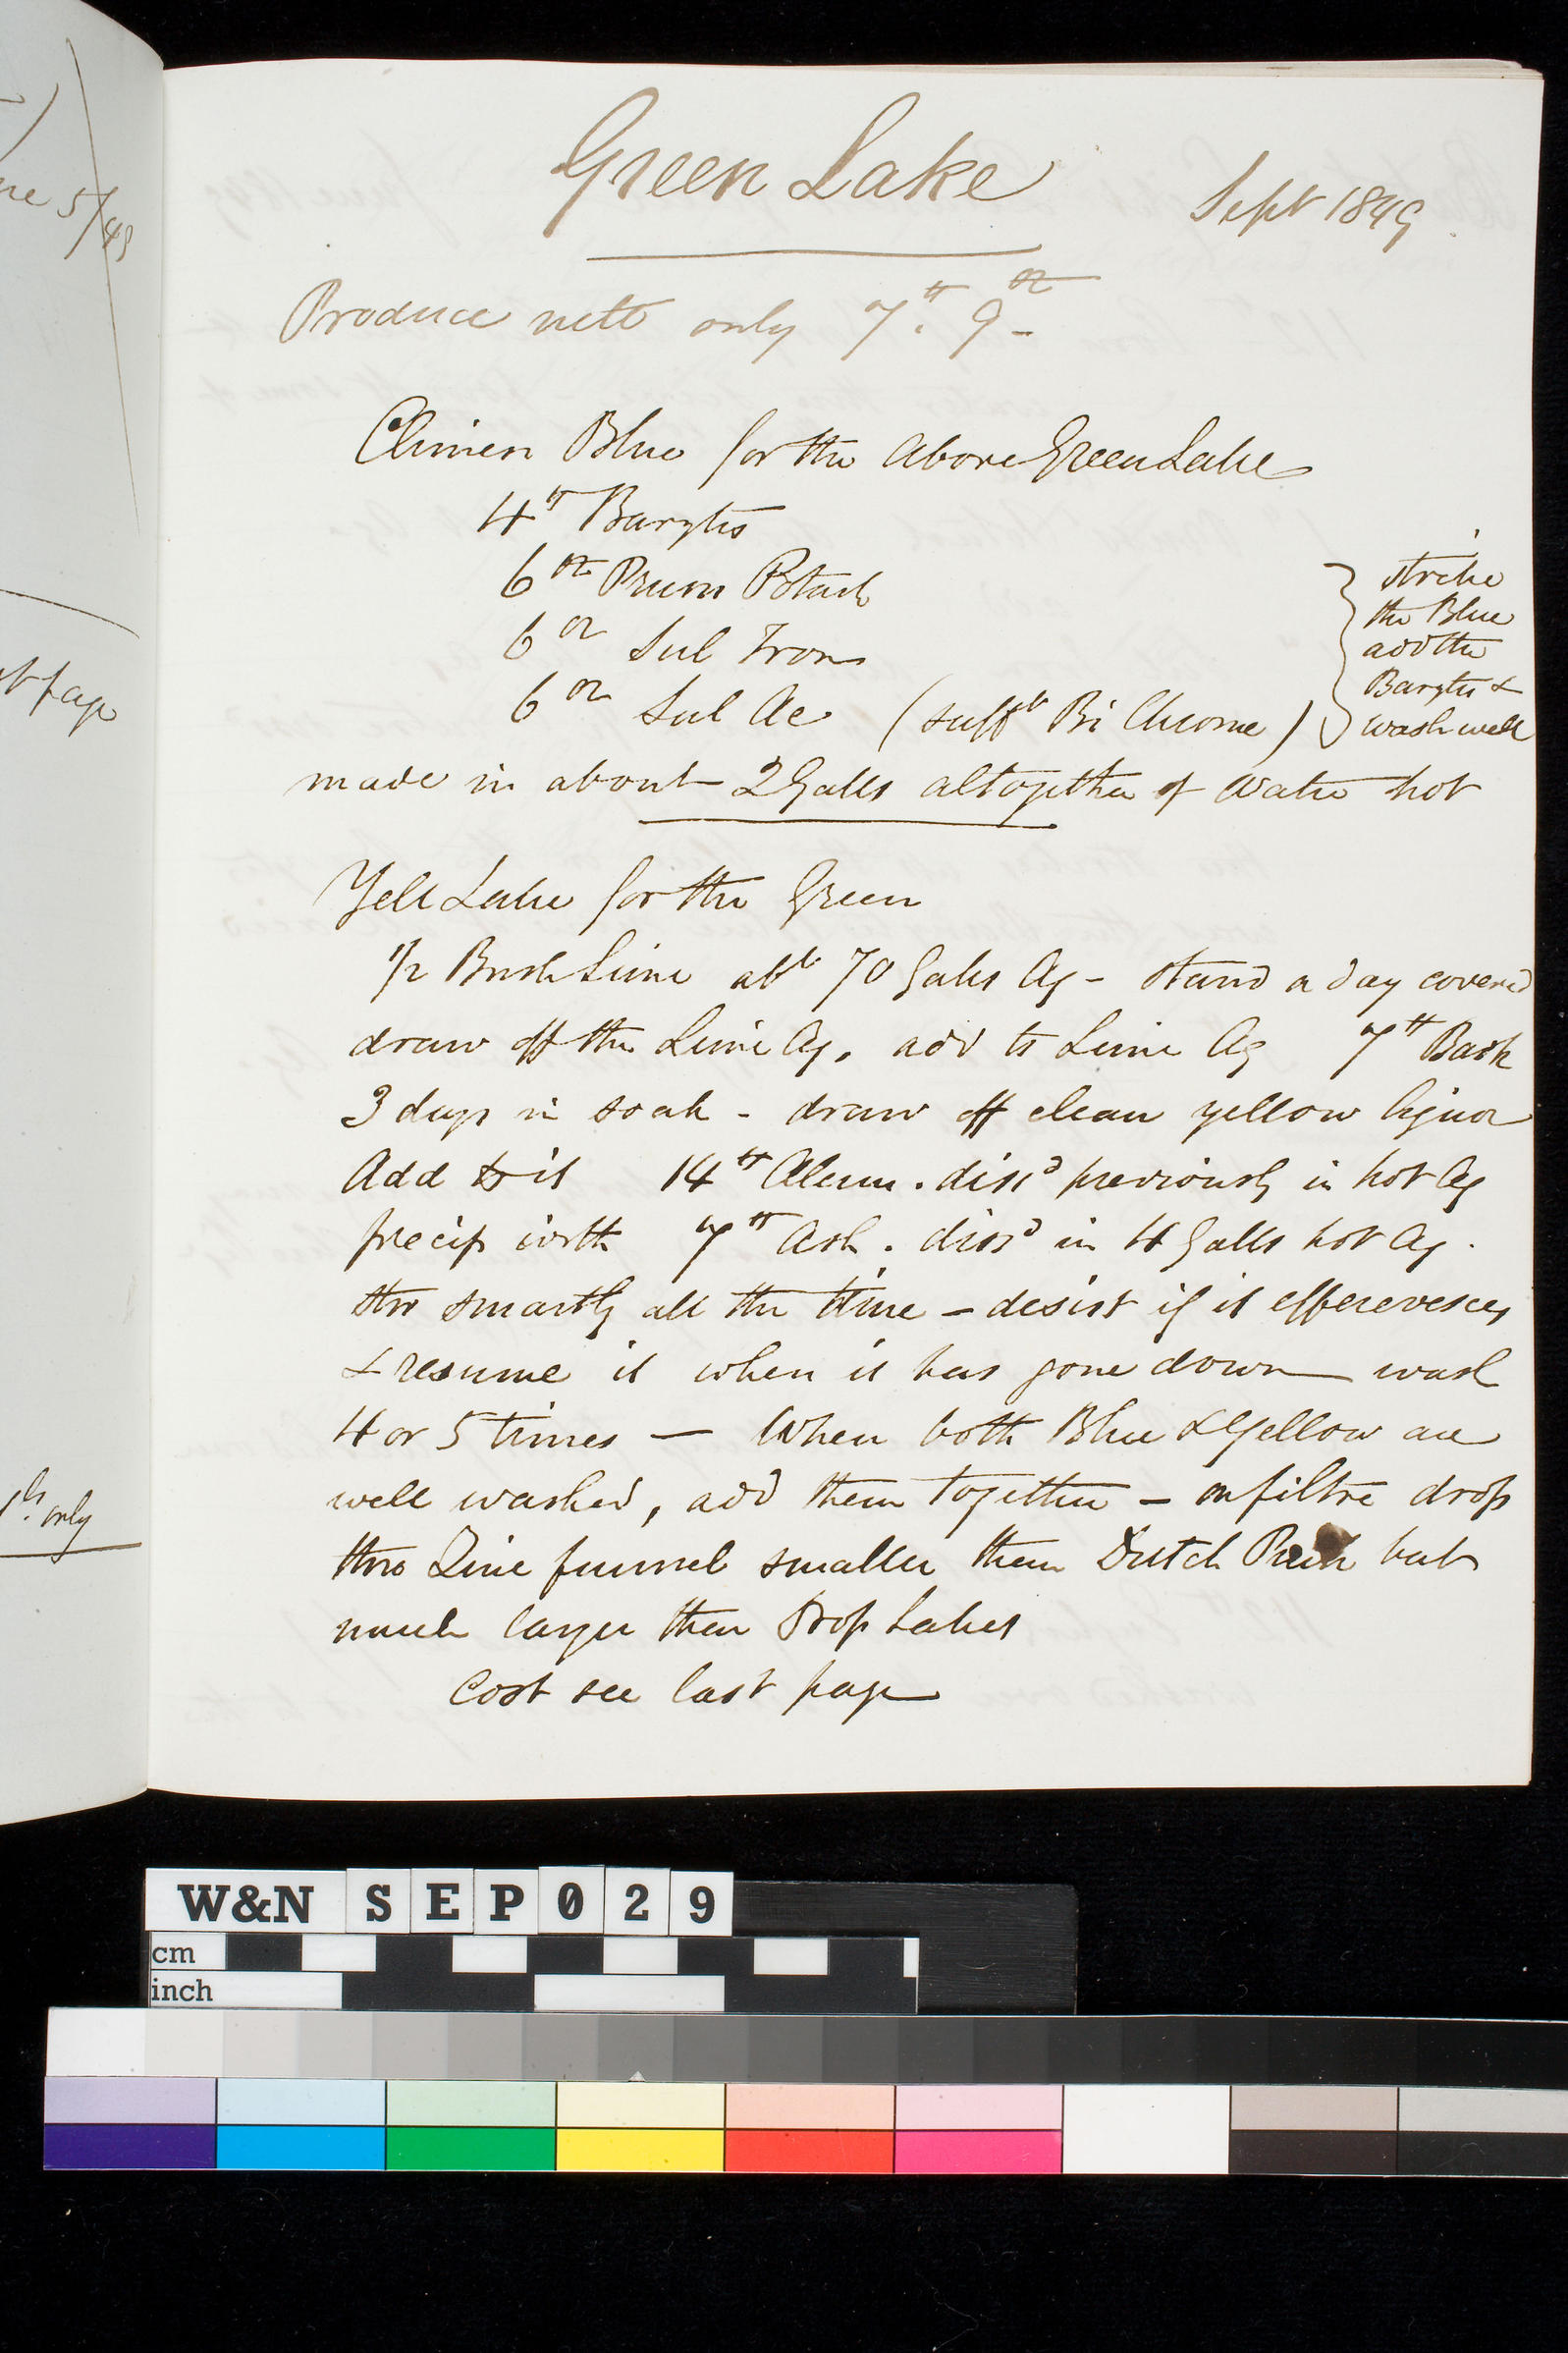 Green Lake
Sept 1849
Produce nett only 7 lb. 9 oz
Chinese Blue for the above Green Lake
4 lb Barytes
6 oz Pruss Potash
6 oz Sul Iron
6 oz Sul Ac (sufft Bi Chrome)
strike
the Blue
add the
Barytes &
wash well
made in about 2 Galls altogether of Water hot
Yell Lake for the Green
1/2 Bush Lime abt 70 Galls Aq - stand a day covered
draw off the Lime Aq. add to Lime Aq 7 lb Bark
3 days in soak - draw off clear yellow liquor
Add to it 14 lb Alum. dissd previously in hot Aq
precip with 7 lb Ash. dissd in 4 Galls hot Aq.
stir smartly all the time - desist if it efferevesces
& resume it when it has gone down wash
4 or 5 times — When both Blue & Yellow are
well washed, add them together - on filtre drop
thro Zinc funnel smaller than Dutch Pink but
much larger than Drop Lakes
Cost see last page
ne 5/49
st page
only
W&N SEP029
cm
inch